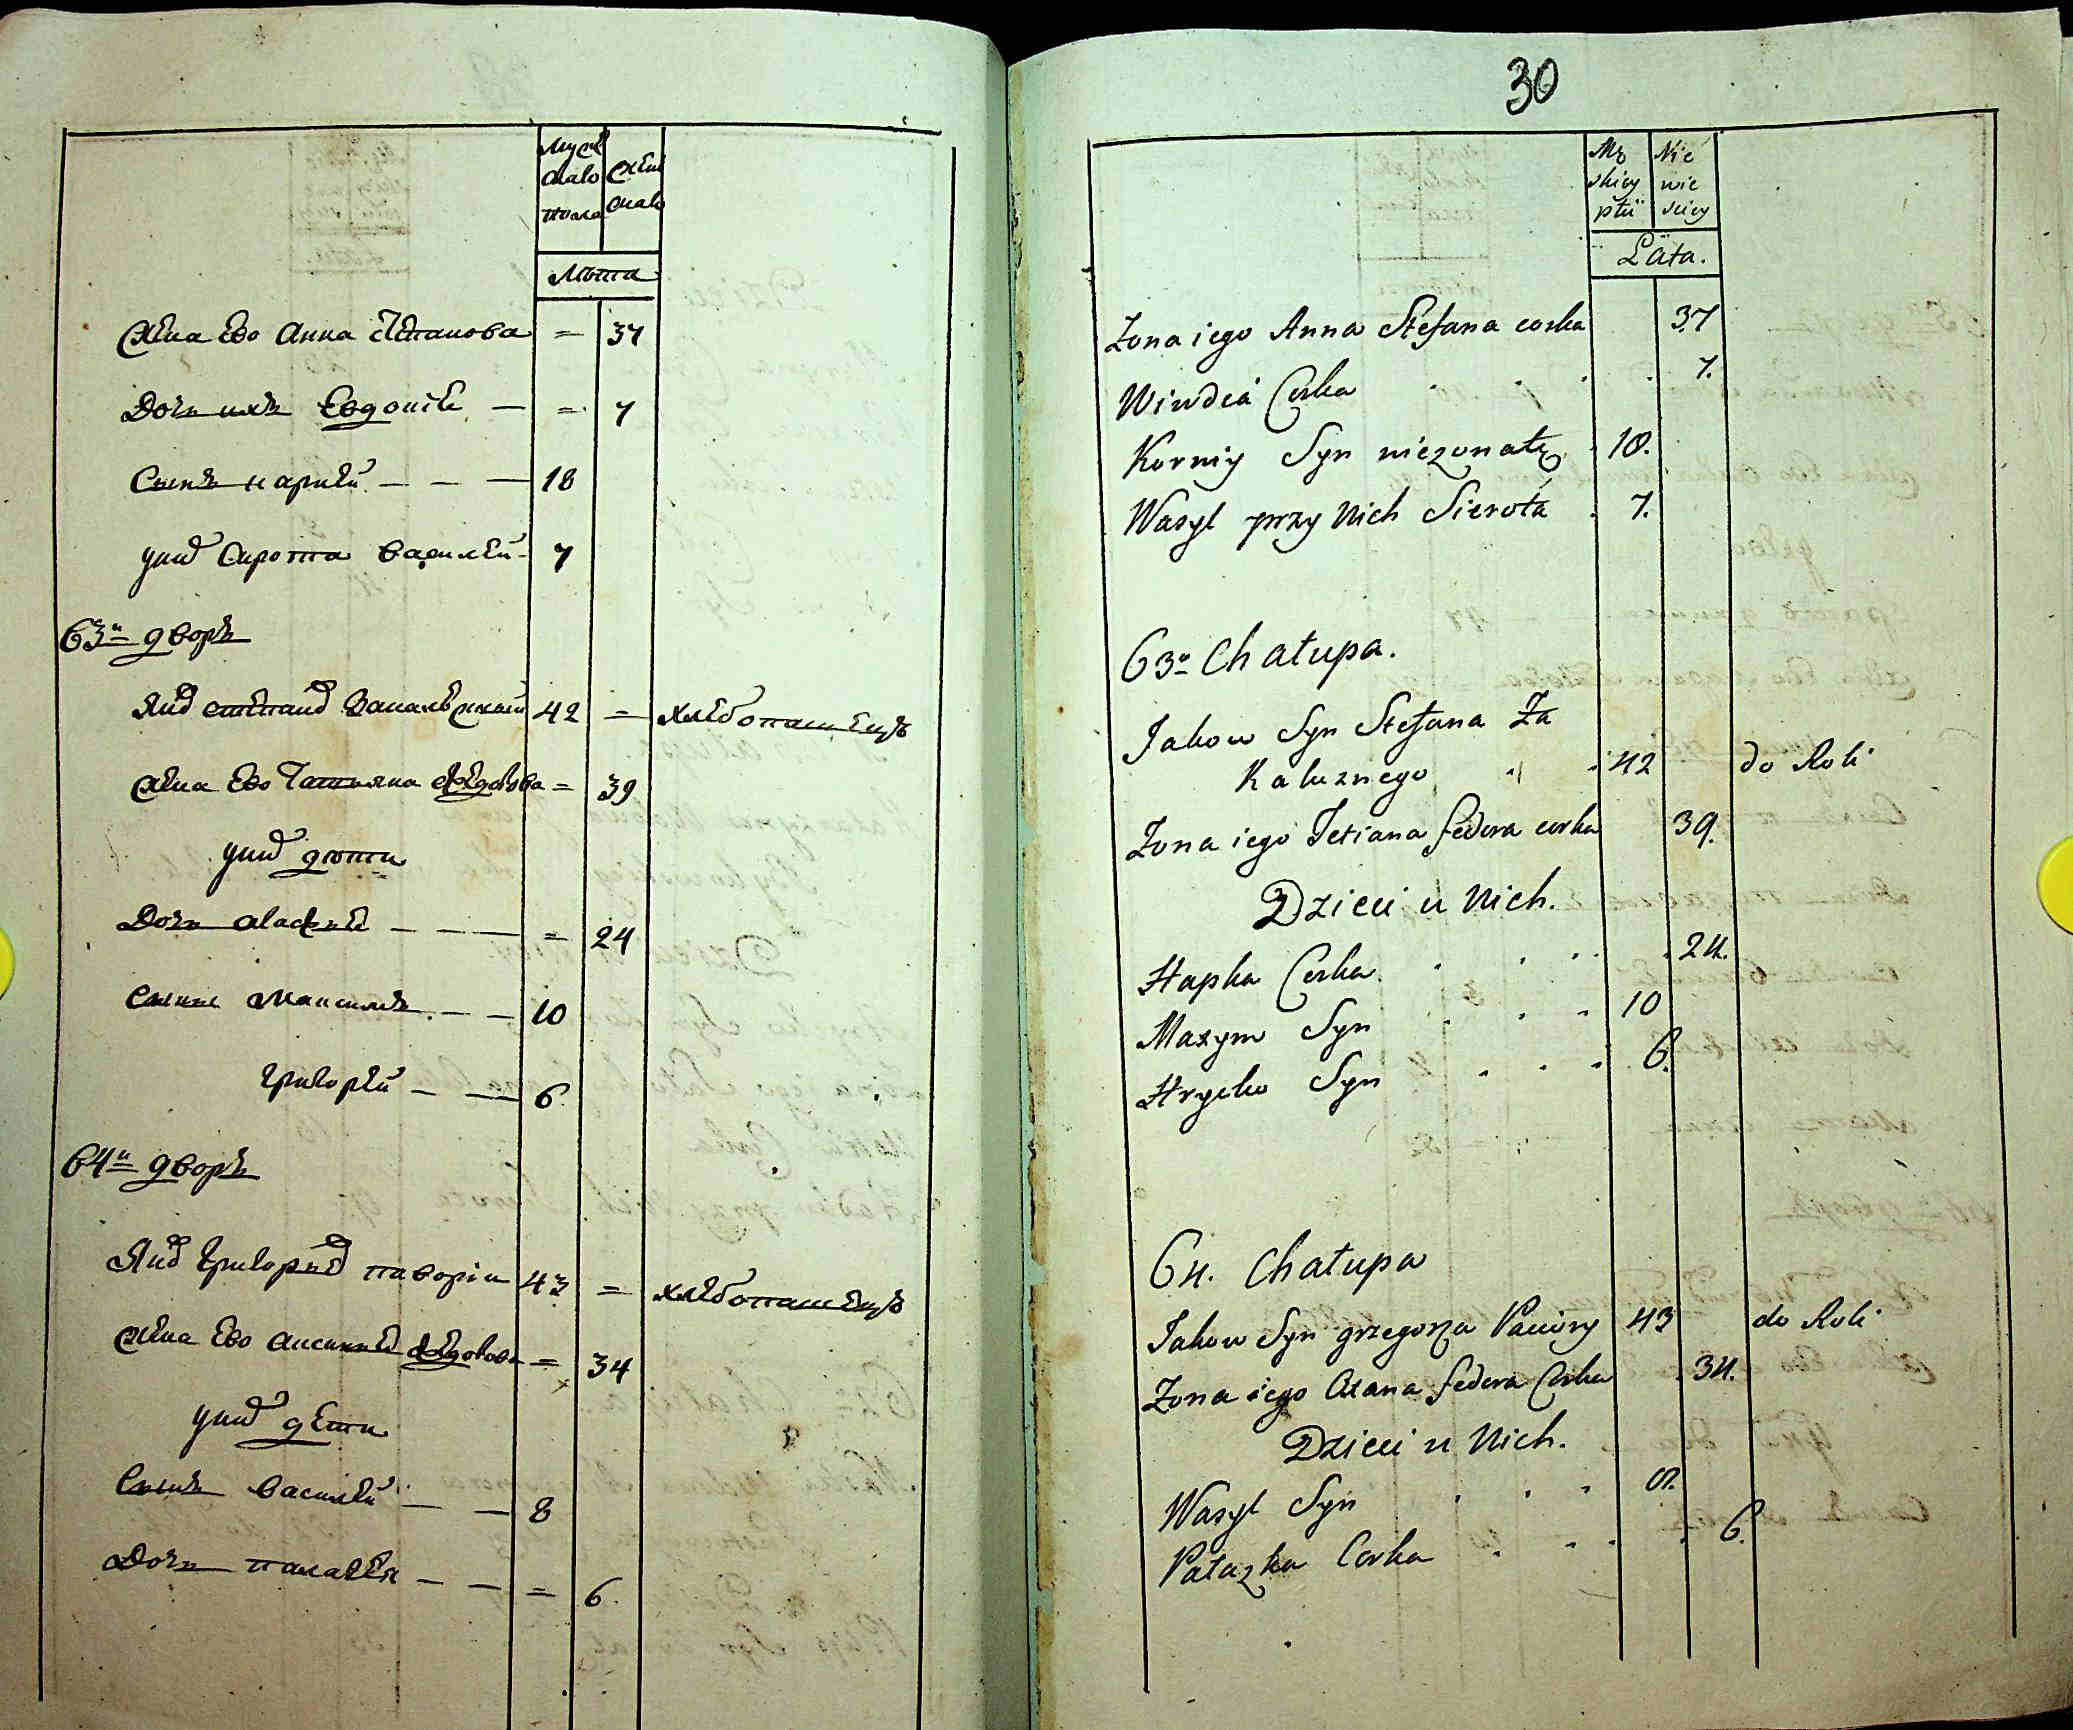 Мужеска пола
Женска
Лѣта
Жена Ево Анна Степанова = 37
Дочь ихъ Евдокія = 7
Сынъ Карнѣй 18
у них Сирота Василѣй 7
63й дворъ
42 = хлѣбопашецъ
Жена Ево Татьяна Федорова = 39
у них дѣти
Дочь = 24
Сыны Максимъ 10
Григорѣй 6.
64й дворъ
43 = хлѣбопашецъ
Жена Ево Федорова = 34
у них дѣти
Сынъ Василѣй 8
Дочь = 6.
30
Męskiey płci
Niewieskiey
Lata.
Zona iego Anna Stefana corka 37
Corka 7.
Korniy Syn niezonaty 18.
Wasyl przy nich Sierota 7.
63o Chałupa.
Jakow Syn Stefana Za
Kaluznego 42 do Roli
Zona iego Tetiana fedora corka 39.
Dzieci u nich.
Hapka Corka 24.
Maxym Syn 10
Hrycko Syn 6.
64. Chałupa
Jakow Syn grzegorza Paciory 43 do Roli
Zona iego Oxana fedora Corka 34.
Dzieci u nich.
Wasyl Syn 8.
Pałazka Corka 6.